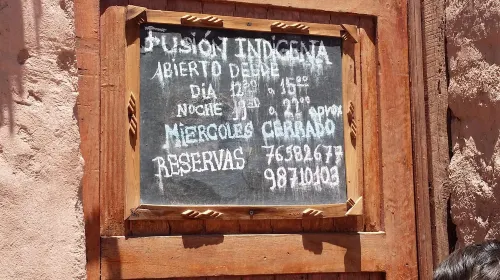 FUSIÓN INDÍGENA
ABIERTO DELDE
DÍA 12⁰⁰ a 15⁰⁰
NOCHE 19³⁰ a 22⁰⁰ aprox
MIERCOLES CERRADO
RESERVAS 76582677
98710103